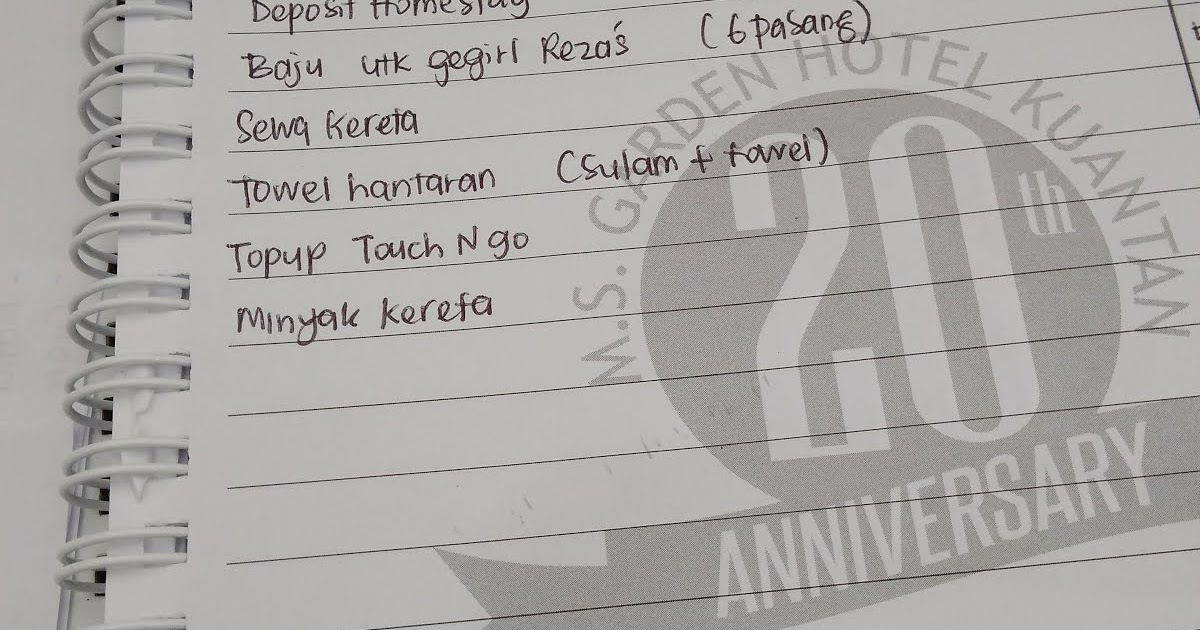 Deposit Homestay
Baju utk gegirl Reza's (6 pasang)
Sewa Kereta
Towel hantaran (Sulam + towel)
Topup Touch N go
Minyak kereta
M.S. GARDEN HOTEL KUANTAN
20th
ANNIVERSARY